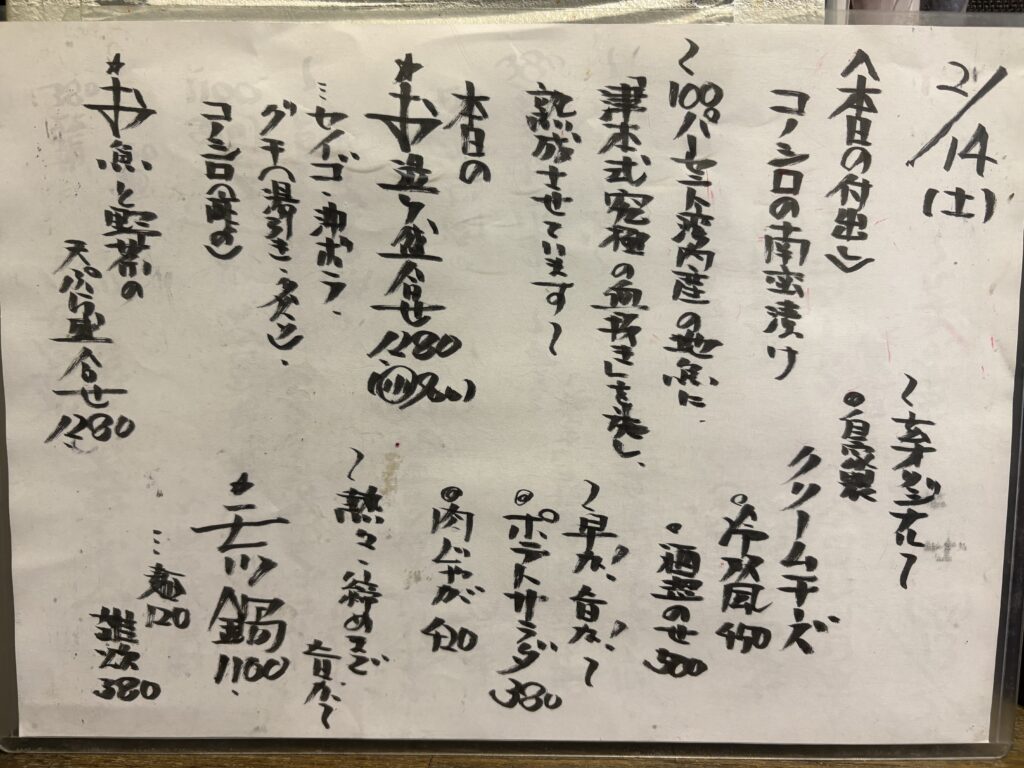 2/14
(土)
〈本日の付出し〉
コノシロの南蛮漬け
〜100パーセント 内産の地魚に
「津本式究極の血抜き」を施し、
熟成させています〜
本日の
★お造り盛合せ 1280
…セイゴ・沖ボラ、
グチ(湯引き・炙り)、
コノシロ(酢〆)
★お魚と野菜の
天ぷら盛合せ 1280
◦自家製
クリームチーズ
◦冷奴風 450
◦酒盗のせ 500
〜早い!旨い!〜
◎ポテトサラダ 380
◎肉じゃが 420
〜熱々、締めまで
旨い〜
★モツ鍋 1100
…麺 120
雑炊 380